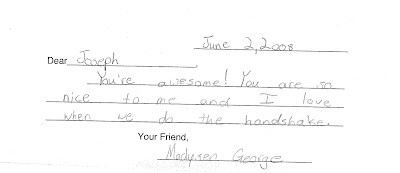 June 2, 2008
Dear Joseph,
You're awesome! You are so
nice to me and I love
when we do the handshake.
Your Friend,
Madysen George